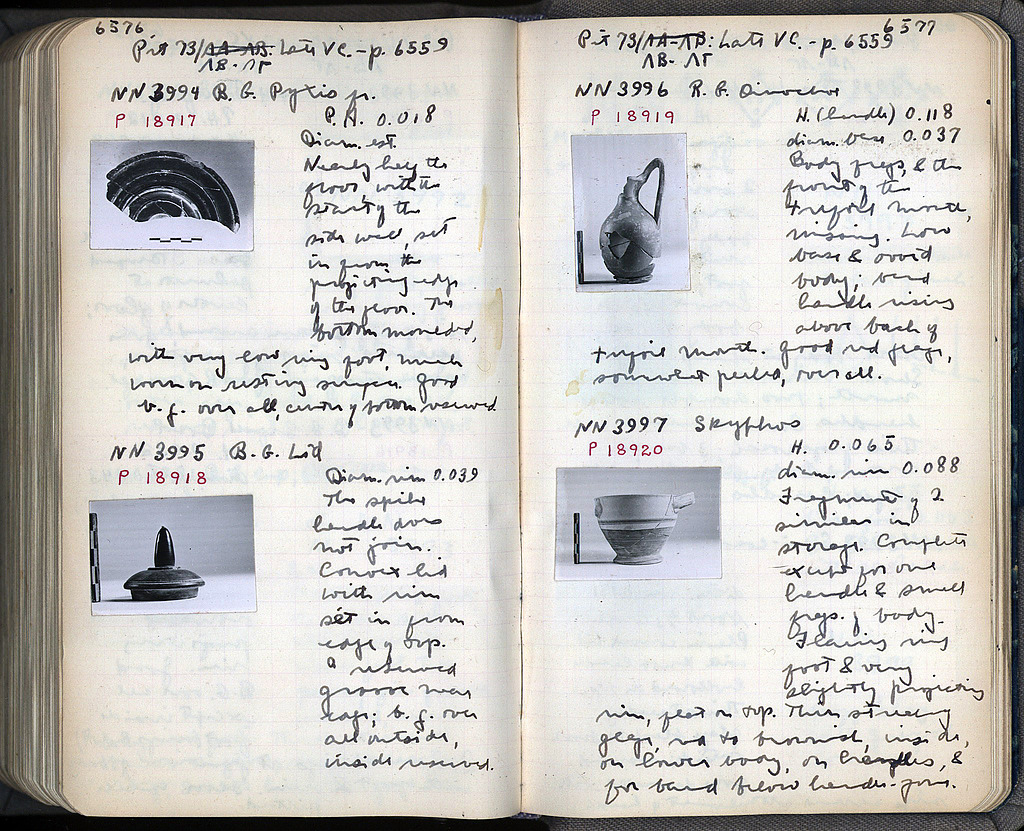 6576
Pit 73/ΛΑ-ΛΒ: Late VC. - p. 6559
ΛΒ-ΛΓ
NN 3994 B.G. Pyxis fr.
P 18917
P.H. 0.018
Diam. est.
Nearly half the
floor, with the
start of the
side wall, set
in from the
projecting edge
of the floor. The
bottom moulded,
with very low ring foot, much
worn on resting surface. Good
b.g. over all, center of bottom reserved.
NN 3995 B.G. Lid
P 18918
Diam. rim 0.039
The spike
handle does
not join.
Convex lid
with rim
set in from
edge of top.
A reserved
groove near
edge; b.g. over
all outside,
inside reserved.
6577
Pit 73/ΛΑ-ΛΒ: Late VC. - p. 6559
ΛΒ-ΛΓ
NN 3996 R.G. Oinochoe
P 18919
H. (handle) 0.118
diam. base 0.037
Body frags, & the
front of the
trefoil mouth,
missing. Low
base & ovoid
body; band
handle rising
above back of
trefoil mouth. Good red glaze,
somewhat peeled, over all.
NN 3997 Skyphos
P 18920
H. 0.065
diam. rim 0.088
Fragments of 2
similar in
storage. Complete
except for one
handle & small
frags. of body.
Flaring ring
foot & very
slightly projecting
rim, flat on top. Thin streaky
glaze, red to brownish, inside,
on lower body, on handles, &
for band below handle-zone.